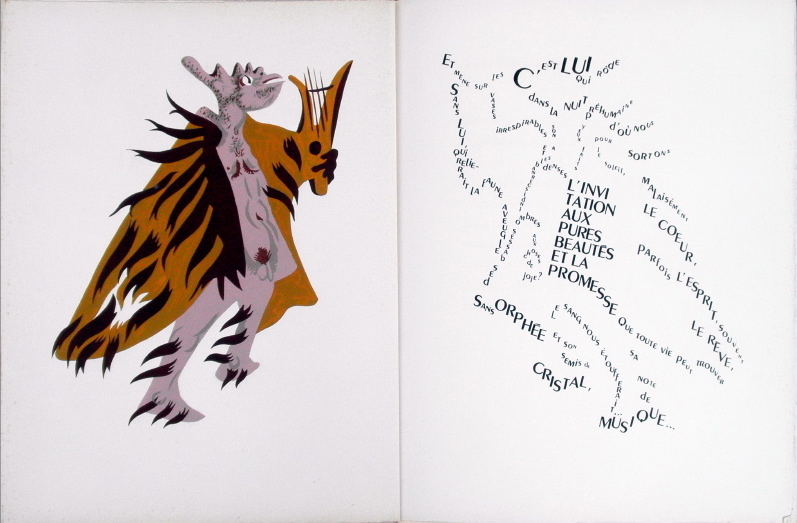 C'EST LUI
QUI RÔDE
DANS LA NUIT PRÉHUMAINE
D'OÙ NOUS
SORTONS
MALAISÉMENT
LE COEUR,
PARFOIS L'ESPRIT, SOUVENT
LE REVE,
ET MÈNE SUR LES
VASES
IRRESPIRABLES
SON
POUR
LE
SOLEIL,
ET
LES DENSES
L'INVI
TATION
AUX
PURES
BEAUTÉS
ET LA
PROMESSE QUE TOUTE VIE PEUT TROUVER
SA
NOTE
DE
MUSIQUE...
SANS LUI,
QUI
RELIE-
RAIT LA FAUNE
AVEUGLE
DES
OMBRES
AUX
CHOSES
DE
JOIE?
SANS ORPHÉE
LE SANG NOUS ÉTOUFFERAIT...
ET SON
SEMIS DE
CRISTAL,